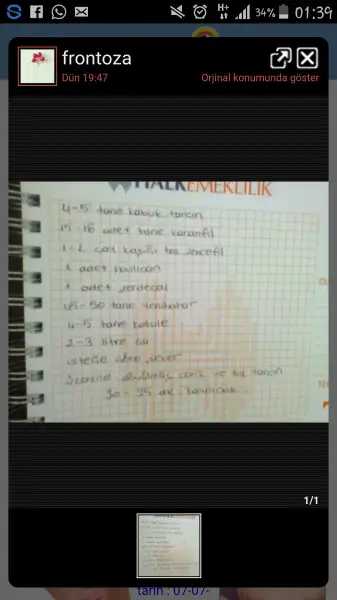 34%
01:39
frontoza
Dün 19:47
Orjinal konumunda göster
HALKEMEKLİLİK
4-5 tane kabuk tarçın
15-16 adet tane karanfil
1-2 çay kaşığı toz zencefil
1 adet havlıcan
1 adet zerdeçal
45-50 tane yenibahar
4-5 tane kakule
2-3 litre su
isteğe göre şeker
Üzerine ceviz ve toz tarçın
30-35 dk. kaynıcak.
1/1
tarih : 07-07-